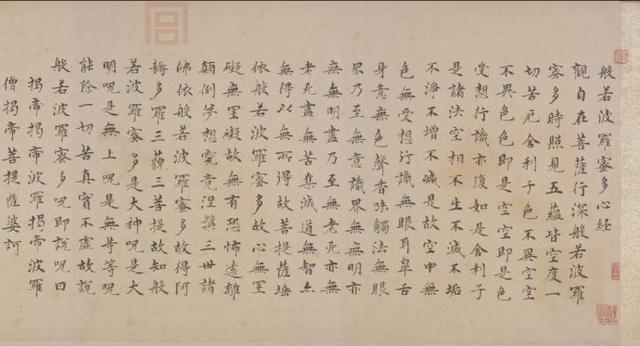 般若波羅蜜多心經
觀自在菩薩行深般若波羅
蜜多時照見五蘊皆空度一
切苦厄舍利子色不異空空
不異色色即是空空即是色
受想行識亦復如是舍利子
是諸法空相不生不滅不垢
不淨不增不減是故空中無
色無受想行識無眼耳鼻舌
身意無色聲香味觸法無眼
界乃至無意識界無無明亦
無無明盡乃至無老死亦無
老死盡無苦集滅道無智亦
無得以無所得故菩提薩埵
依般若波羅蜜多故心無罣
礙無罣礙故無有恐怖遠離
顛倒夢想究竟涅槃三世諸
佛依般若波羅蜜多故得阿
耨多羅三藐三菩提故知般
若波羅蜜多是大神呪是大
明呪是無上呪是無等等呪
能除一切苦真實不虛故說
般若波羅蜜多呪即說呪曰
揭帝揭帝波羅揭帝波羅
僧揭帝菩提薩婆訶